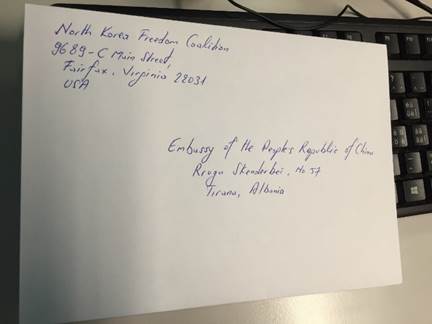 North Korea Freedom Coalition
9689-C Main Street,
Fairfax, Virginia 22031
USA
Embassy of the Peoples Republic of China
Rruga Skenderbei, No 57
Tirana, Albania